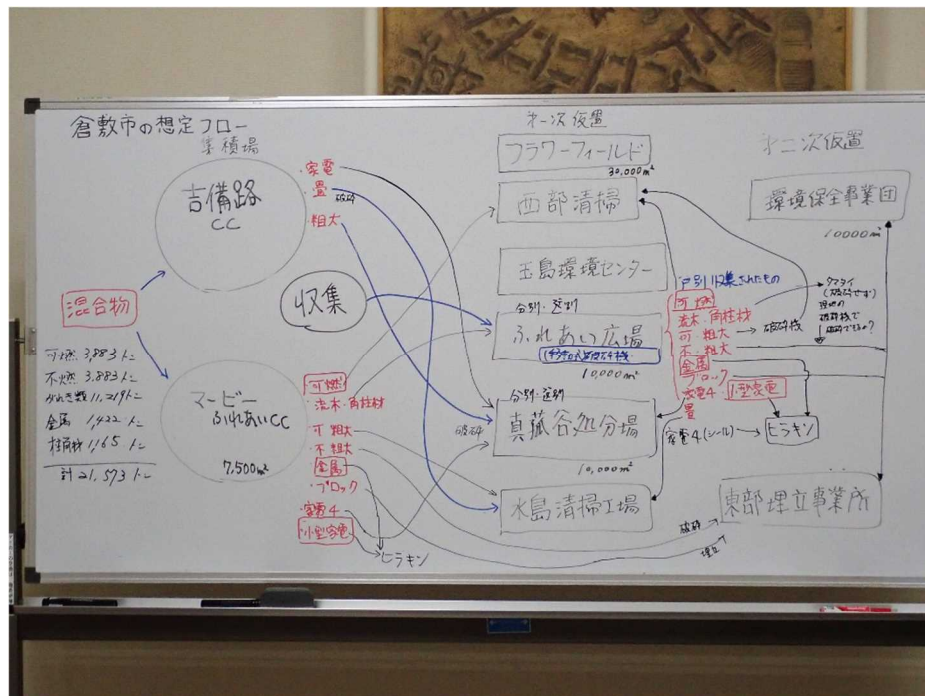 倉敷市の想定フロー
集積場
吉備路
CC
・家電
・畳
破砕
・粗大
収集
混合物
可燃 3,883トン
不燃 3,883トン
がれき類 11,219トン
金属 1,422トン
柱角材 1,165トン
計 21,573トン
マービー
ふれあいCC
7,500m²
可燃
・流木・角柱材
・可粗大
・不粗大
・金属
・ブロック
・家電4
・小型家電
ヒラキン
第一次仮置
フラワーフィールド
30,000m²
西部清掃
玉島環境センター
分別・選別
ふれあい広場
10,000m²
分別・選別
破砕
真菰谷処分場
10,000m²
水島清掃工場
戸別収集されたもの
可燃
流木・角柱材
可・粗大
→破砕機
不・粗大
金属
ブロック
家電4
小型家電
畳
家電4(シール)
ヒラキン
第二次仮置
環境保全事業団
10000m²
(破砕せず)
現地の
破砕機で
破砕できるか?
東部埋立事業所
破砕
埋立